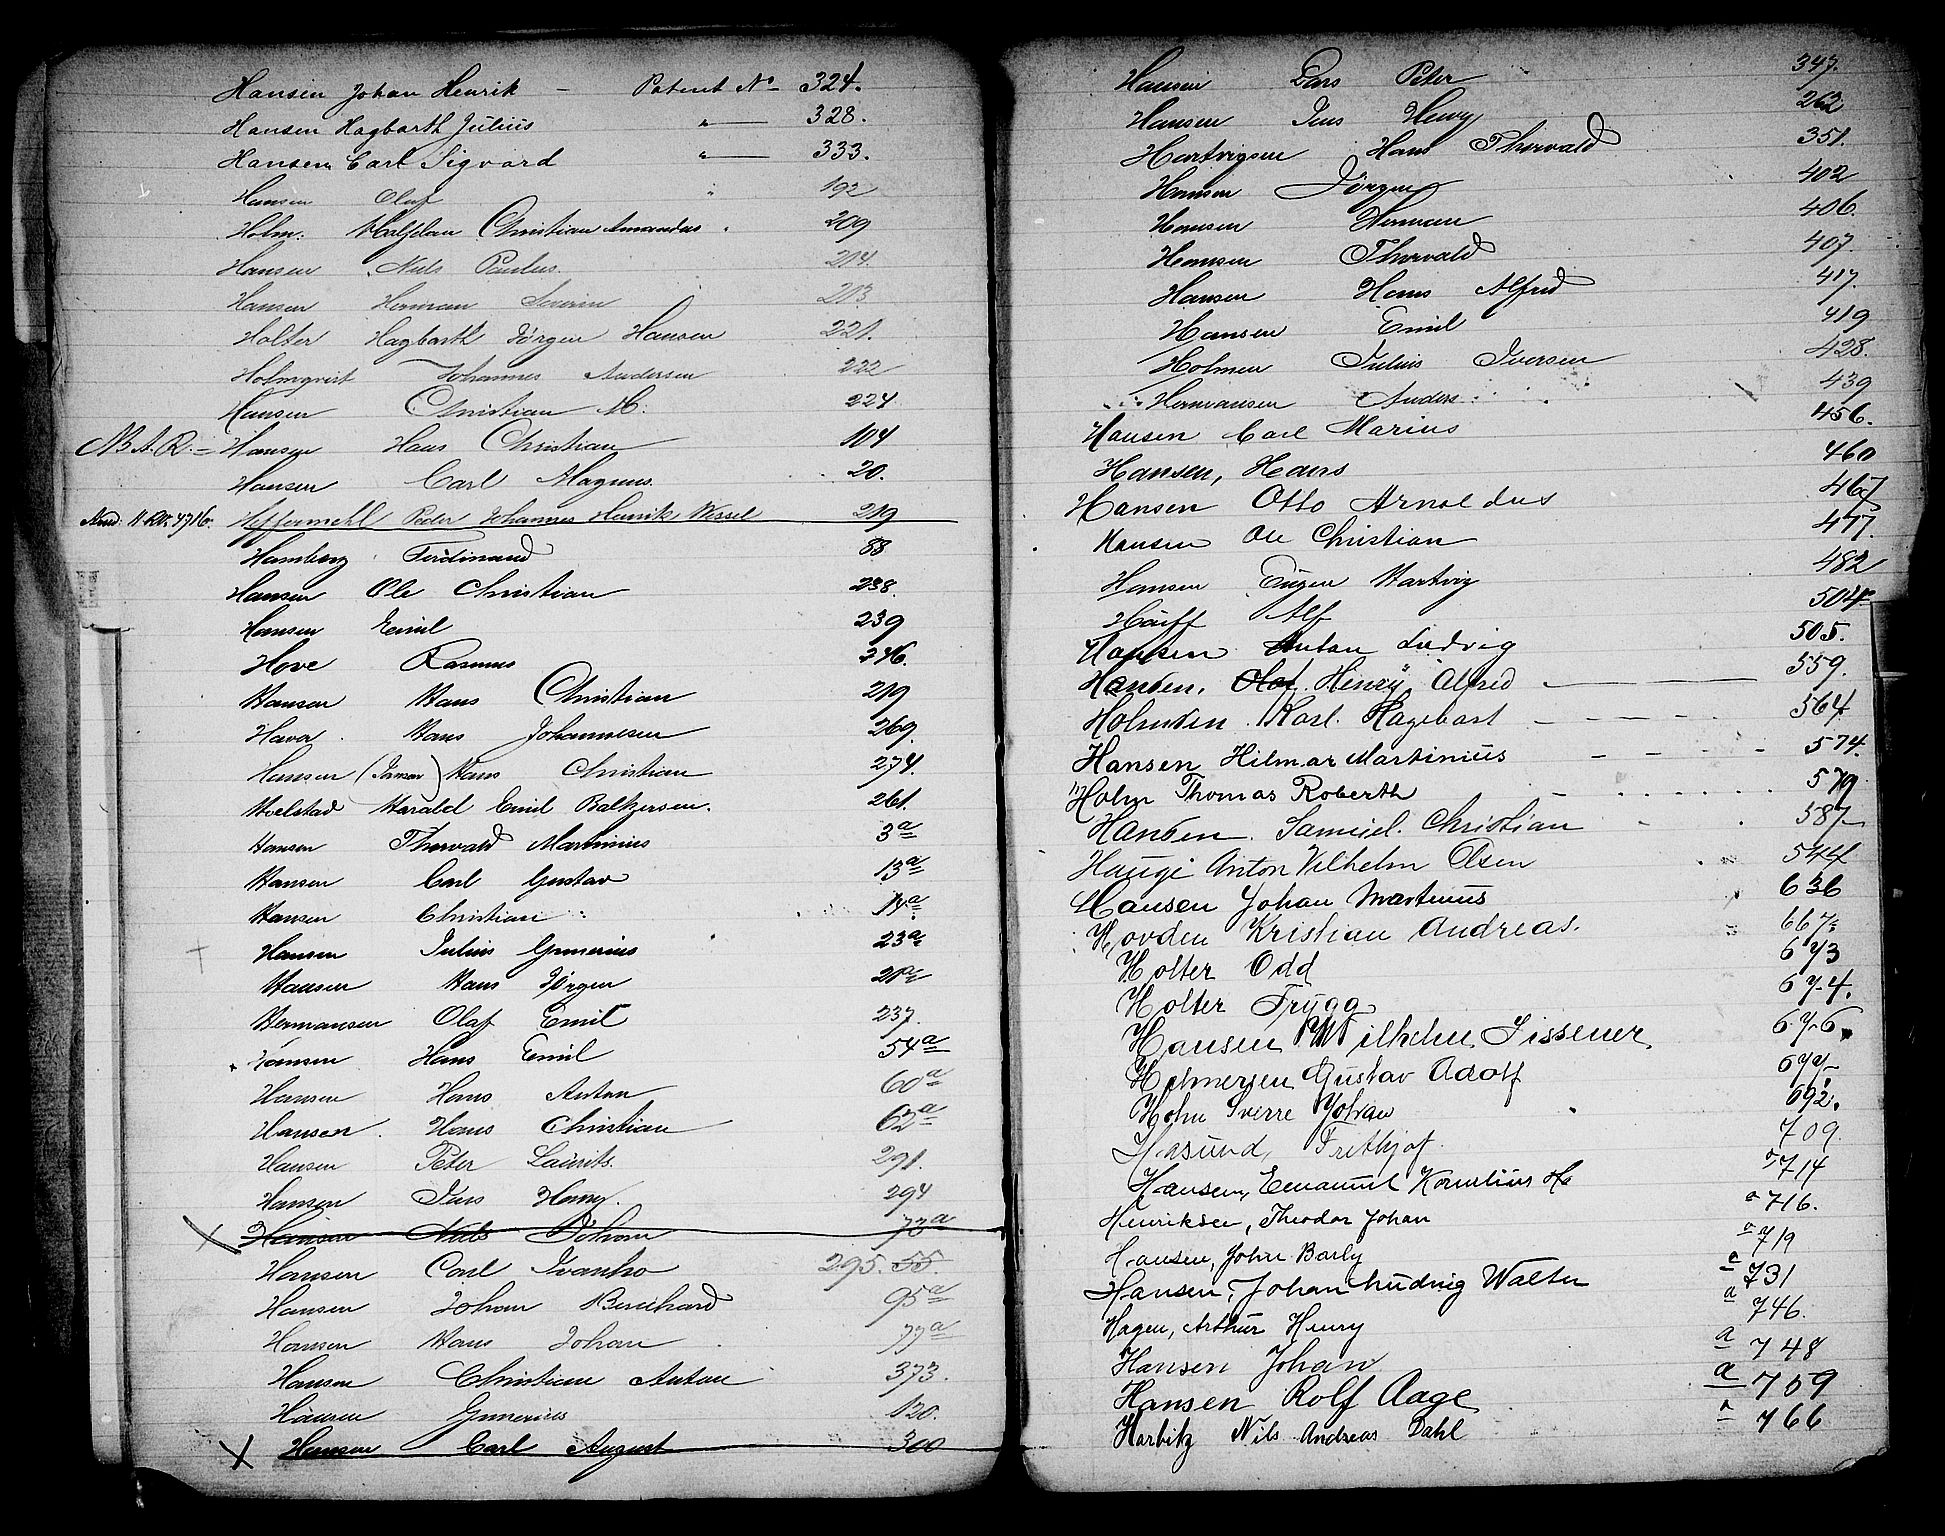 Hansen Johan Henrik - Patent No 324.
Hansen Hagbarth Julius " — 328.
Hansen Carl Sigvard " — 333.
Hansen Olaf " 192
Holm. Halfdan Christian Amandus " 209
Hansen Niels Paulus. 214.
Hansen Herman Severin 213.
Holter Hagbarth Jørgen Hansen 221.
Holmqvist Johannes Andersen 222
Hansen Christian M. 224
N.B. A. R. = Hansen Hans Christian 104
Hansen Carl Magnus. 20.
Heffermehl Peder Johannes Henrik Wessel 219
Hamberg Ferdinand 88
Hansen Ole Christian 238.
Hansen Emil 239
Hove Rasmus 246.
Hansen Hans Christian 219
Hans Johannesen 269.
Hansen (Jansen) Hans Christian 274.
Hoelstad Harald Emil Balkersen. 261.
Hansen Thorvald Martinius 3a
Hansen Carl Gustav 13a
Hansen Christian 14a
Hansen Julius Gunerius 23a
Hansen Hans Jørgen
Hermansen Olaf Emil 237.
Hansen Hans Emil 54a
Hansen Hans Anton 60a
Hansen. Hans Christian 62a
Hansen Peter Laurits. 291.
Hansen Jens Henry. 294
Hansen Niels Johan 73a
Hansen Carl Ivanho 295. 55.
Hansen Johan Bernhard 95a
Hansen Hans Johan 77a
Hansen Christian Anton 373.
Hansen Gunerius 120.
X Hansen Carl August 300
Hansen Lars Peter 347.
Hansen Jens Henry 262
Hartvigsen Hans Thorvald 351.
Hansen Jørgen 402
Hansen Herman 406.
Hansen Thorvald 407
Hansen Hans Alfred 417.
Hansen Emil 419
Holmen Julius Iversen 428.
Hermansen Anders 439
Hansen Carl Marius 456.
Hansen, Hans 460
Hansen Otto Arnoldus 467
Hansen Ole Christian 477.
Hansen Eugen Hartvig 482
Hauff Alf 504
Hansen Anton Ludvig 505.
Hansen, Olaf Henry Alfred — 559.
Holmsen. Karl. Hagebart — 564
Hansen Hilmar Martinius — 574.
Holm Thomas Roberth — 579
Hansen. Samuel. Christian 587
Hauge Anton Vilhelm Olsen 544
Hansen Johan Martinus 636
Hovden Kristian Andreas. 667
Holter Odd 673
Holter Trygg 674.
Hansen Wilhelm Sissener 676.
Helmersen Gustav Adolf 677
Holm Sverre Johan 692.
Hasund, Frithjof 709.
Hansen, Emanuel Kornelius Hs a 714
Henriksen, Theodor Johan a 716.
Hansen, John Barly a 719
Hansen, Johan Ludvig Walter a 731
Hagen, Arthur Henry a 746.
Hansen Johan a 748
Hansen Rolf Aage a 759
Harbitz Nils Andreas Dahl a 766